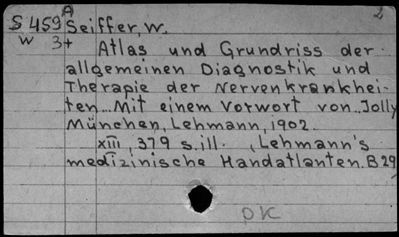 A
S 459 Seiffer, W. 2
W 3+ Atlas und Grundriss der
allgemeinen Diagnostik und
Therapie der Nervenkrankhei-
ten. Mit einem Vorwort von Jolly
München, Lehmann, 1902.
XIII, 379 s. ill. (Lehmann's
medizinische Handatlanten. B 29)
pK